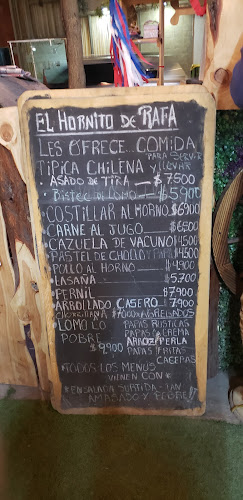 EL HORNITO DE RAFA
LES OFRECE... COMIDA
TIPICA CHILENA PARA SERVIR Y LLEVAR
• ASADO DE TIRA — $7500
• BISTEC DE LOMO — $5.900
COSTILLAR AL HORNO $6900
CARNE AL JUGO — $6500
CAZUELA DE VACUNO $4500
PASTEL DE CHOCLO Y PAPAS $4500
POLLO AL HORNO — $4.900
LASAÑA — 5.700
PERNIL — $7.900
ARROLLADO CASERO 7.900
AGREGADOS
LOMO LO PAPAS RUSTICAS
POBRE PAPAS CREMA
$9.900 ARROZ PERLA
PAPAS FRITAS
CACERAS
•TODOS LOS MENUS
VIENEN CON•
•ENSALADA SURTIDA - PAN
AMASADO Y PEBRE!